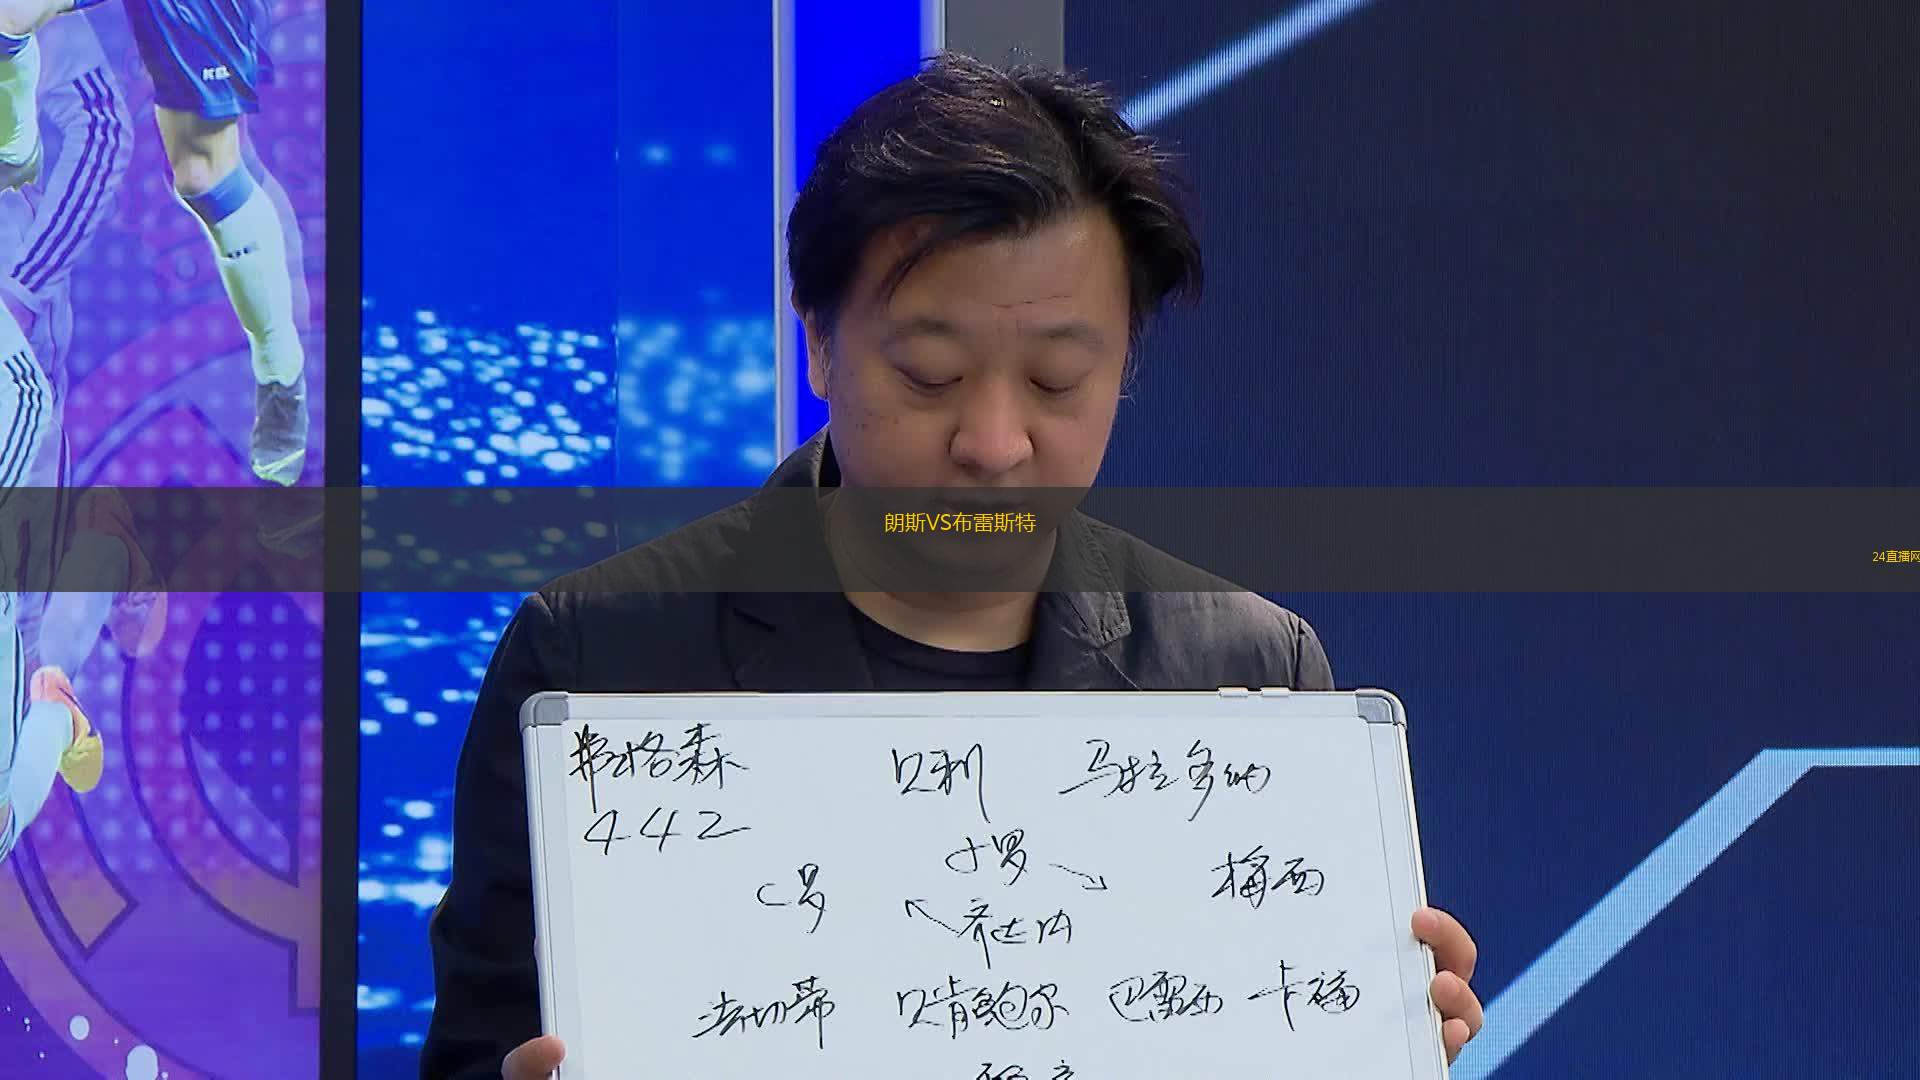 朗斯VS布雷斯特
24直播网
弗格森 贝利 马拉多纳
442
小罗
C罗 梅西
齐达内
法切蒂 贝肯鲍尔 巴雷西 卡福